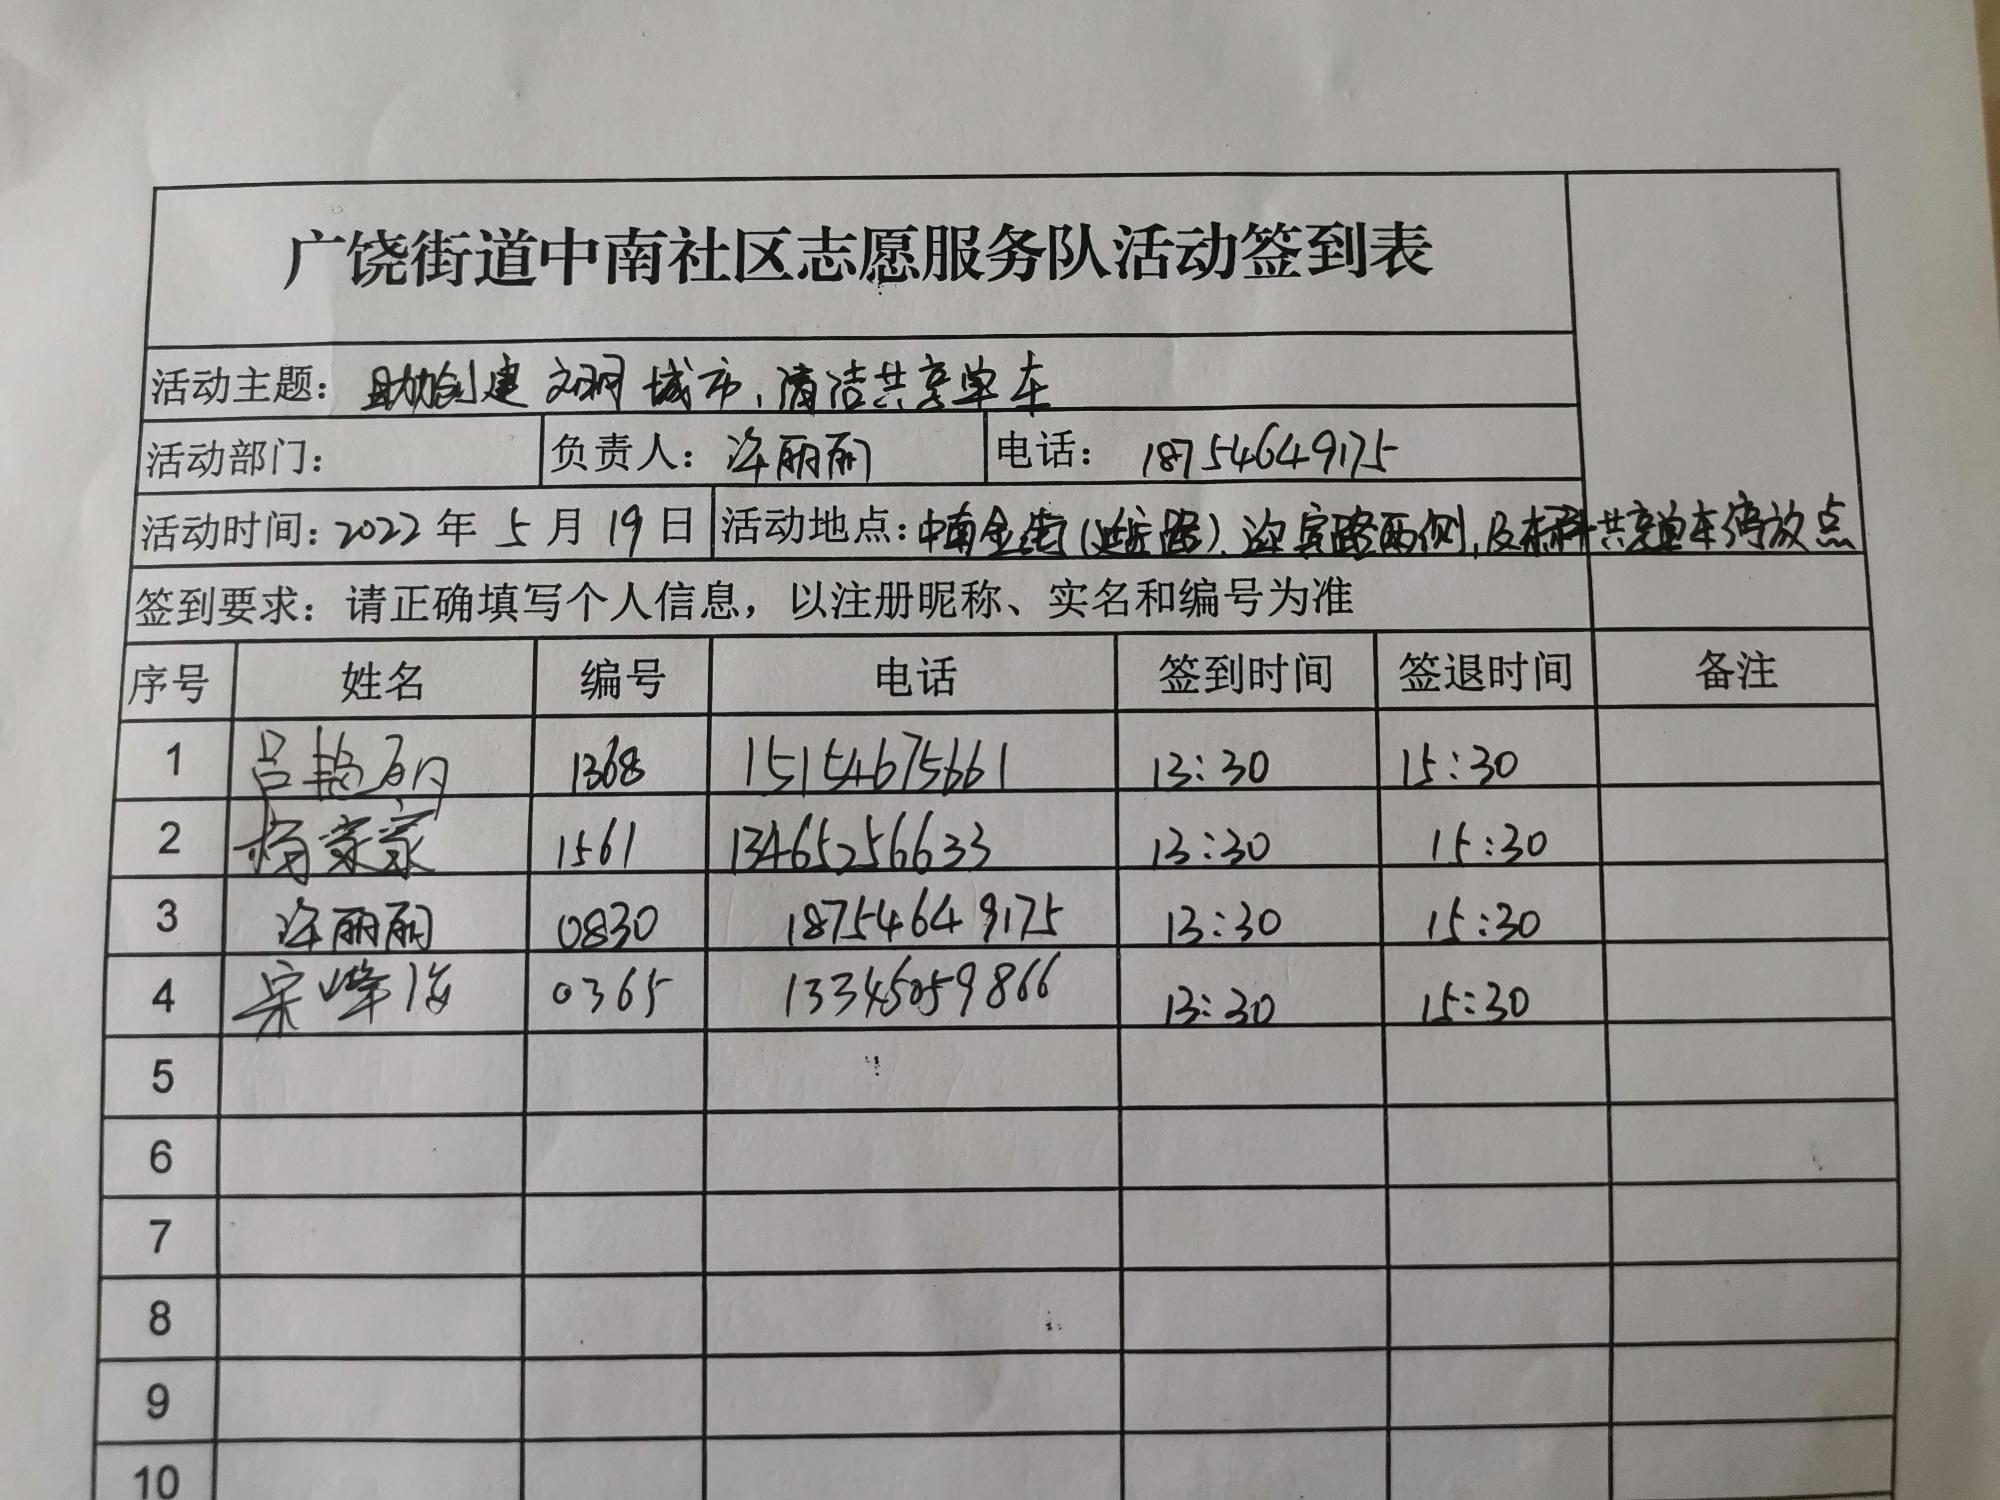 广饶街道中南社区志愿服务队活动签到表
活动主题：助力创建文明城市，清洁共享单车
活动部门： 负责人：许丽丽 电话：18754649175
活动时间：2022年5月19日 活动地点：中南金街（ 路）、迎宾路两侧，及 共享单车停放点
签到要求：请正确填写个人信息，以注册昵称、实名和编号为准
序号 姓名 编号 电话 签到时间 签退时间 备注
1 吕艳丽 1368 15154675661 13:30 15:30
2 杨家家 1561 13465256633 13:30 15:30
3 许丽丽 0830 18754649175 13:30 15:30
4 宋峰海 0365 13345059866 13:30 15:30
5
6
7
8
9
10